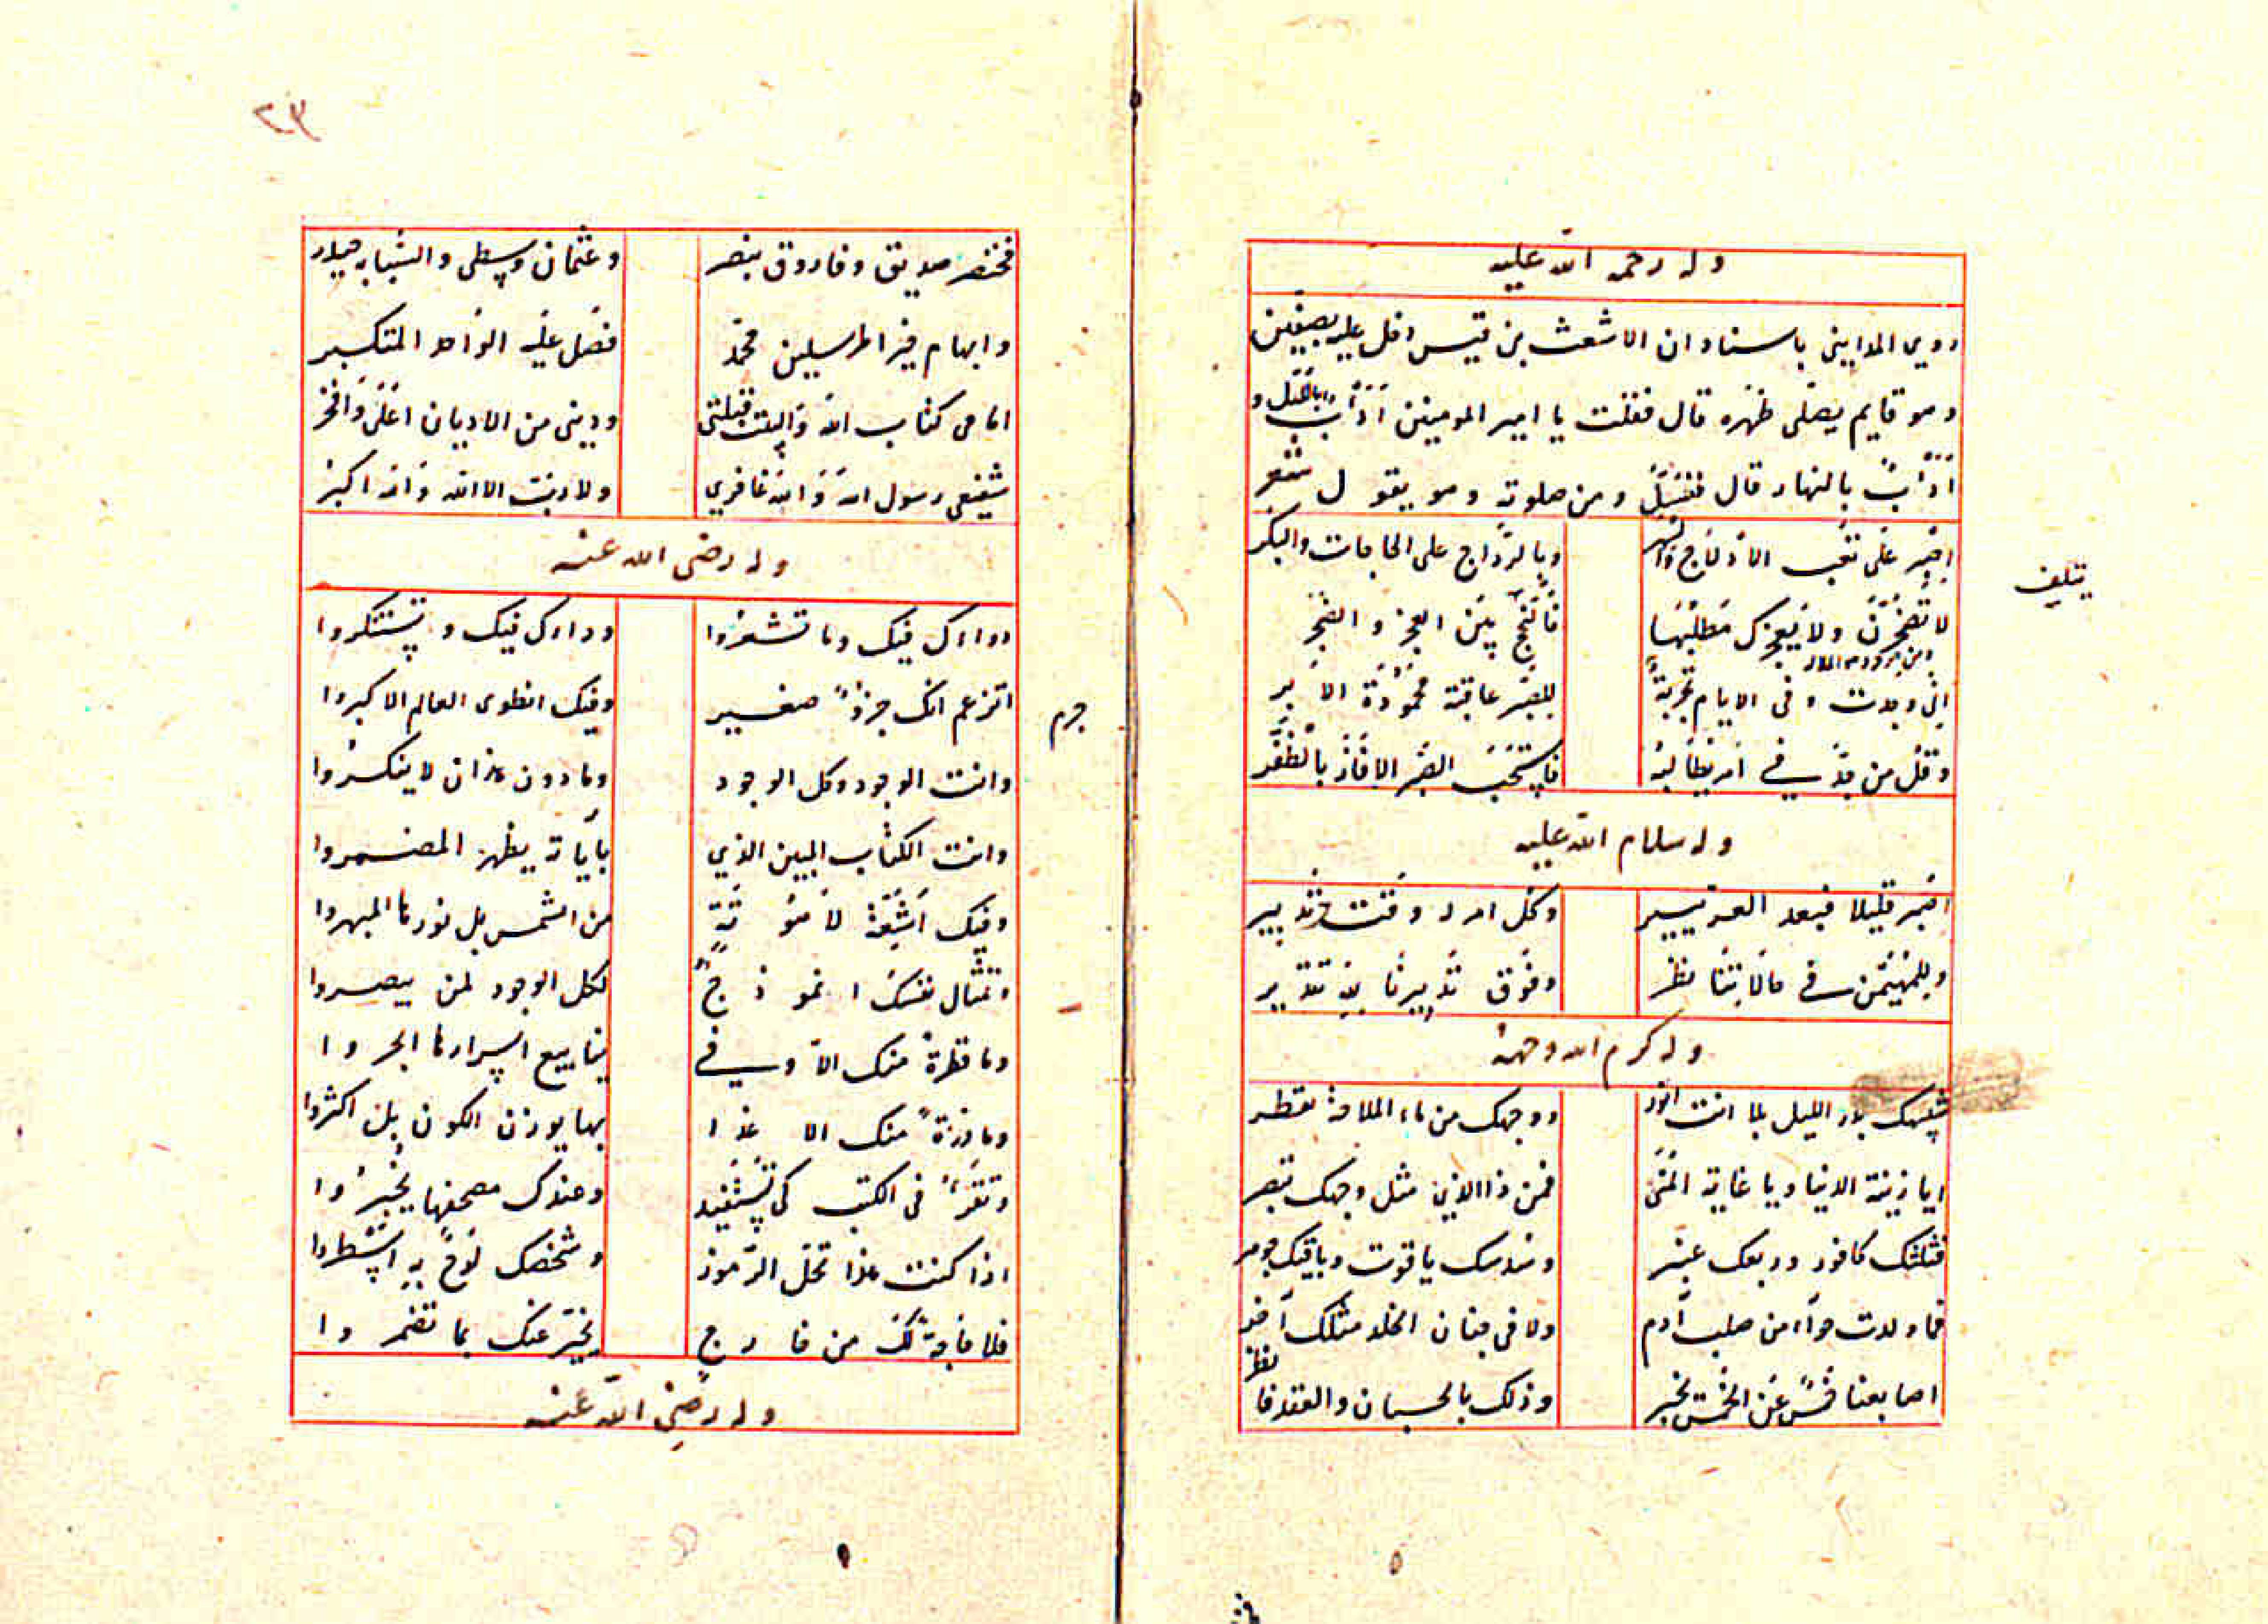 وله رحمة الله عليه
روي المدايني باسناد ان الاشعث بن قيس دخل عليه بصفين
وهو قايم يصلى ظهره قال فقلت يا امير المومنين اَدَأْبٌ بالليل و
اَدَأْبٌ بالنهار قال فَنَسَلَ من صلوته وهو يقول شعر
اصبر على تعب الادلاج والسهر وبالرواج على الحاجات والبكر
لا تضجرن ولا يعجزك مطلبها فالنجح بين العجز والضجر
انى وجدت وفى الايام تجربة للصبر عاقبة محمودة الاثر
وقل من جد في امر يطالبه فاستصحب الصبر الا فاز بالظفر
وله سلام الله عليه
اصبر قليلا فبعد العسر تيسير وكل امر له وقت وتدبير
وللمهيمن في حالاتنا نظر وفوق تدبيرنا لله تقدير
وله كرم الله وجهه
شبيهك بدر الليل بل انت انور ووجهك من ماء الملاحة يقطر
ايا زينة الدنيا ويا غاية المنى فمن ذا الذين مثل وجهك تبصر
فثلثك كافور وربعك عنبر وسدسك ياقوت وباقيك جوهر
فما ولدت حواء من صلب آدم ولا فى جنان الخلد مثلك آخر
اصابعنا خمس عن الخمس تخبر وذلك بالحسبان والعقد فانظر
٢٣
فخنصر صديق وفاروق بنصر وعثمان وسطى والسبابه حيدر
وابهام خير المرسلين محمد فصل عليه الواحد المتكبر
امامى كتاب الله والبيت قبلتى ودينى من الاديان اعلى وافخر
شفيعى رسول الله والله غافري ولا رب الا الله والله اكبر
وله رضى الله عنه
دواءك فيك وما تشعروا وداءك فيك وتستنكروا
اتزعم انك جزؤ صغير وفيك انطوى العالم الاكبروا
جرم
وانت الوجود وكل الوجود وما دون هذان لا ينكروا
وانت الكتاب المبين الذي باياته يظهر المضمروا
وفيك اشعة من الشمس بل نورها المبهروا
وتمثال نفسك انموذج لكل الوجود لمن يبصروا
وما قطرة منك الا وفي ينابيع اسرارها ابحروا
وما ذرة منك الا غدا بها يوزن الكون بل اكثروا
وتقرأ فى الكتب كى تستفيد وعندك مصحفها يخبروا
اذا كنت هذا تحل الرموز وشخصك لوح به اسطروا
فلا حاجة لك من خارج يخبر عنك بما تضمروا
وله رضى الله عنه